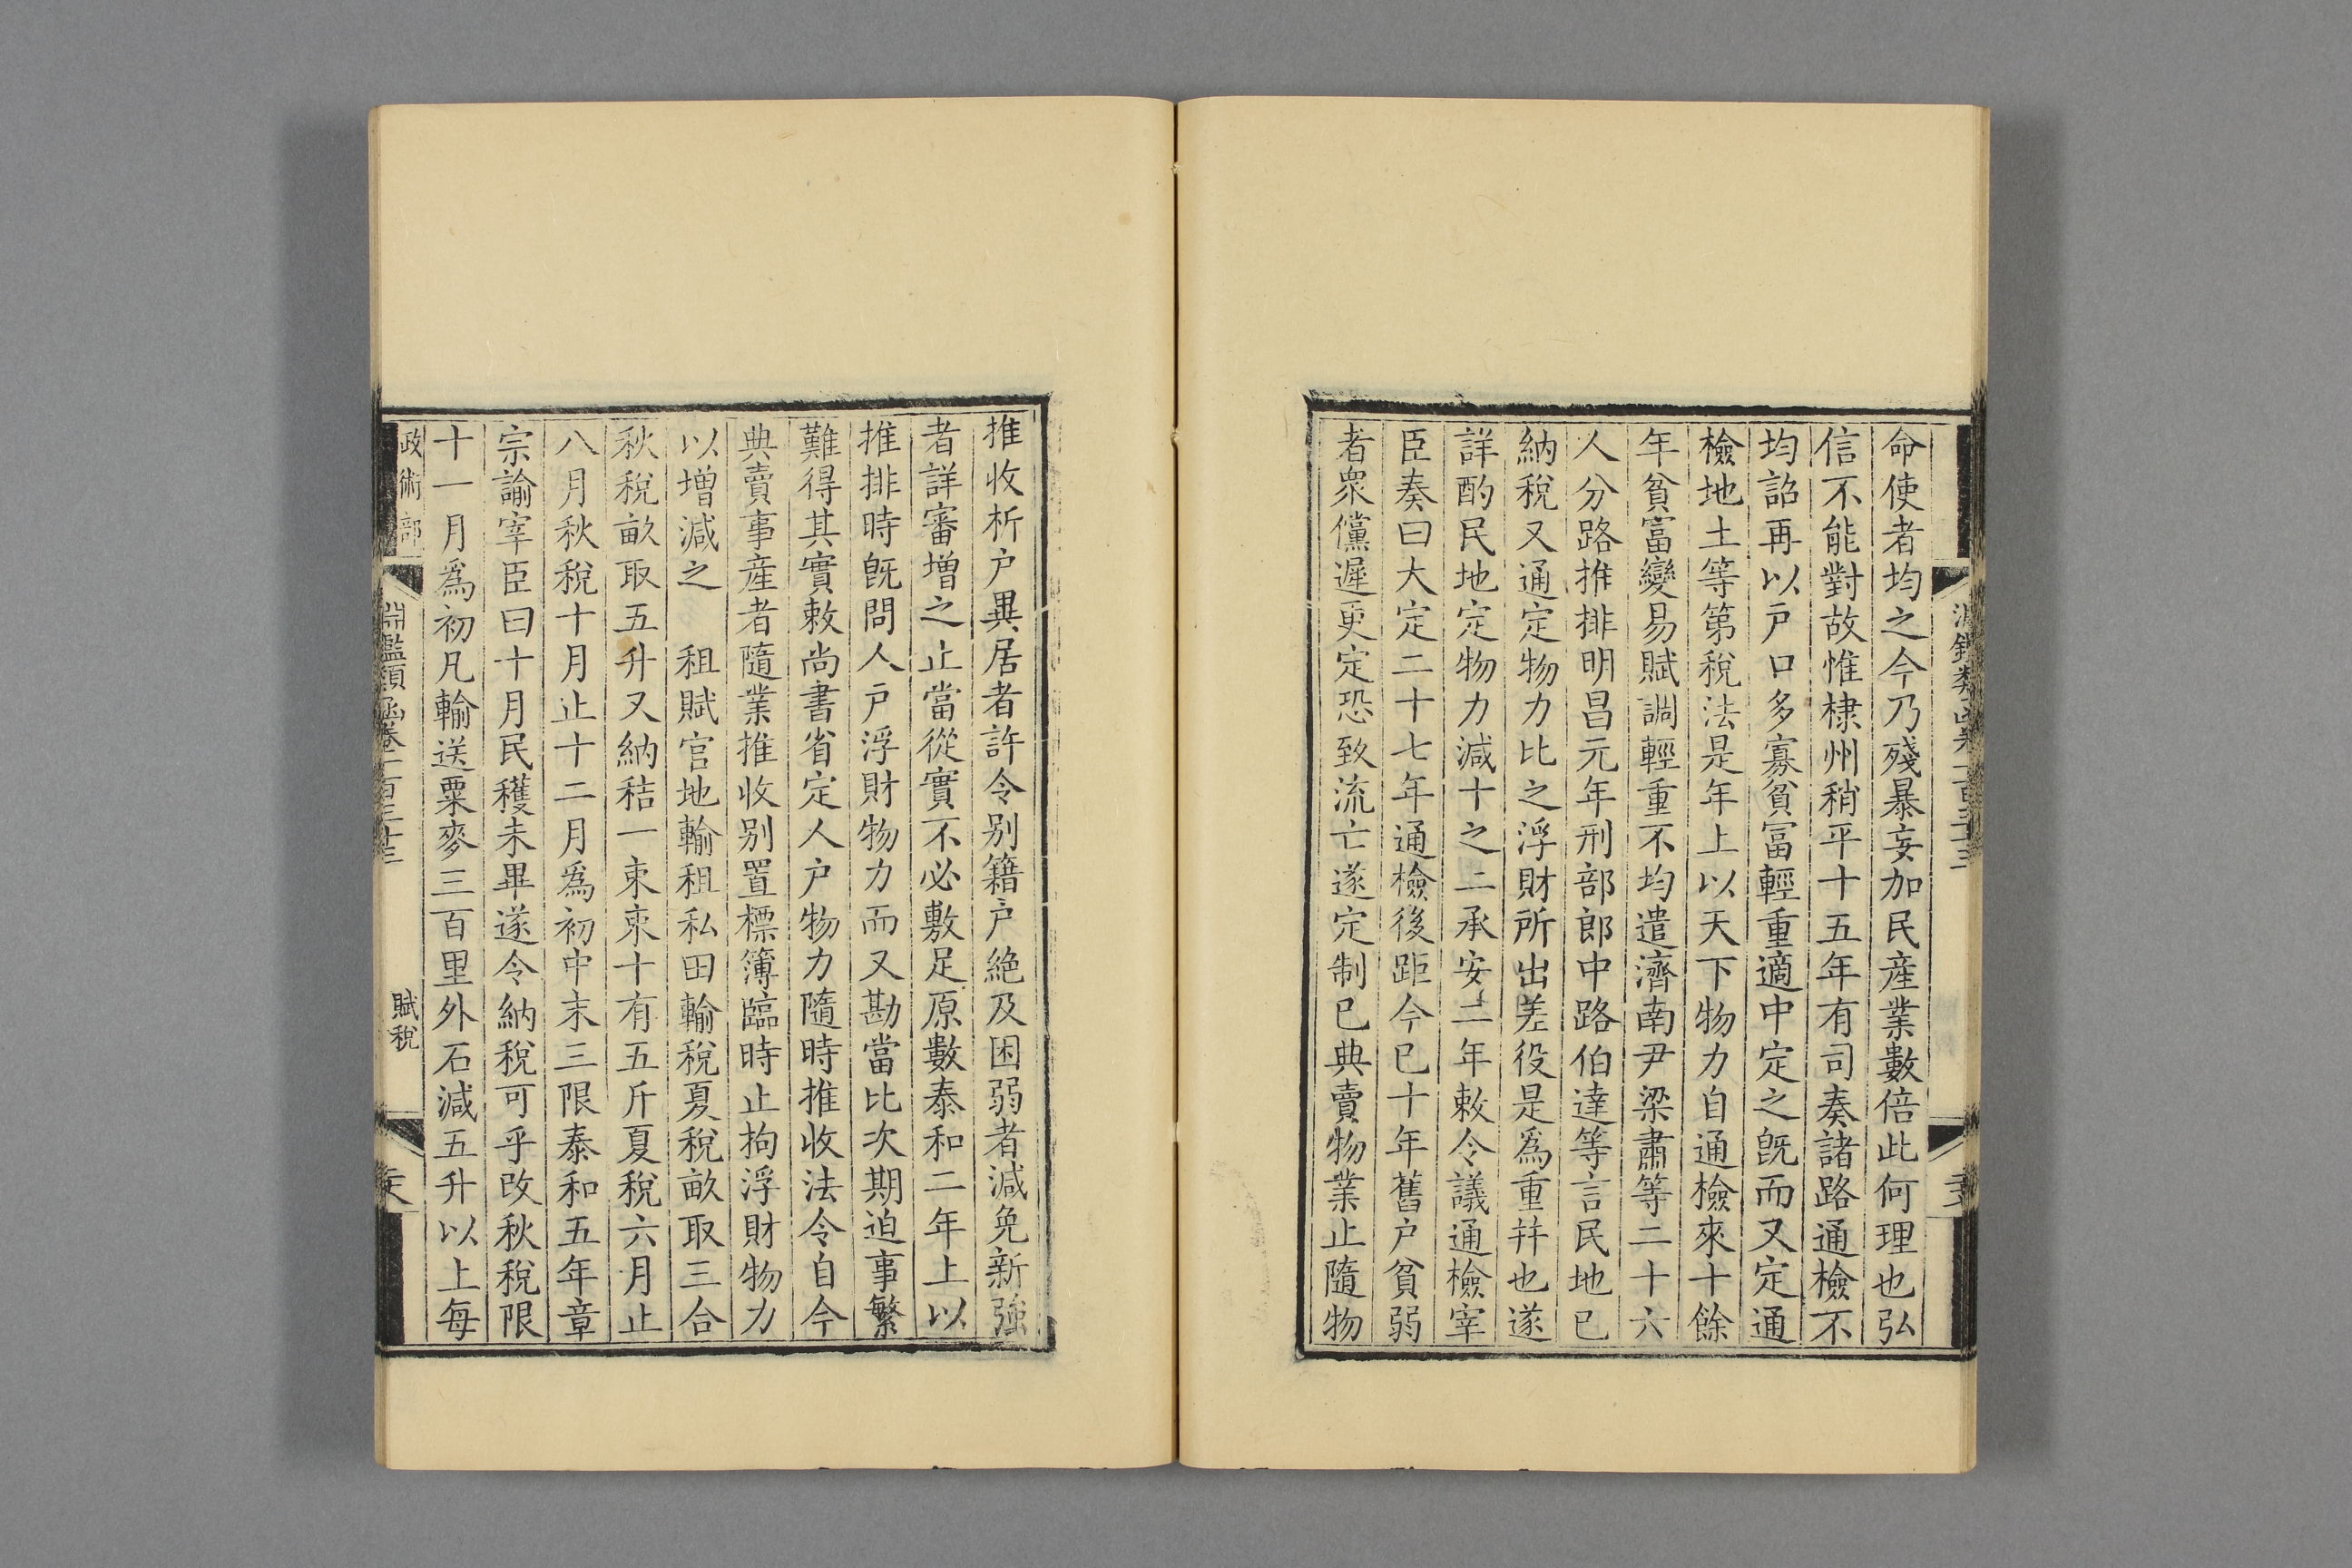 命使者均之今乃殘暴妄加民産業數倍此何理也弘
信不能對故惟棣州稍平十五年有司奏諸路通檢不
均詔再以戸口多寡貧富輕重適中定之旣而又定通
檢地土等第稅法是年上以天下物力自通檢來十餘
年貧富變易賦調輕重不均遣濟南尹梁肅等二十六
人分路推排明昌元年刑部郎中路伯達等言民地已
納稅又通定物力比之浮財所出差役是爲重幷也遂
詳酌民地定物力減十之二承安二年敕令議通檢宰
臣奏曰大定二十七年通檢後距今已十年舊戸貧弱
者衆儻遲更定恐致流亡遂定制已典賣物業止隨物
推收析戸異居者許令别籍戸絶及困弱者減免新強
者詳審增之止當從實不必敷足原數泰和二年上以
推排時旣問人戸浮財物力而又勘當比次期迫事繁
難得其實敕尚書省定人戸物力隨時推收法令自今
典賣事産者隨業推收别置標簿臨時止拘浮財物力
以增減之　租賦官地輸租私田輸稅夏稅畝取三合
秋稅畝取五升又納秸一束束十有五斤夏稅六月止
八月秋稅十月止十二月爲初中末三限泰和五年章
宗諭宰臣曰十月民穫未畢遂令納稅可乎改秋稅限
十一月爲初凡輸送粟麥三百里外石減五升以上每
政術部
淵鑑類函卷一百三十三
賦稅